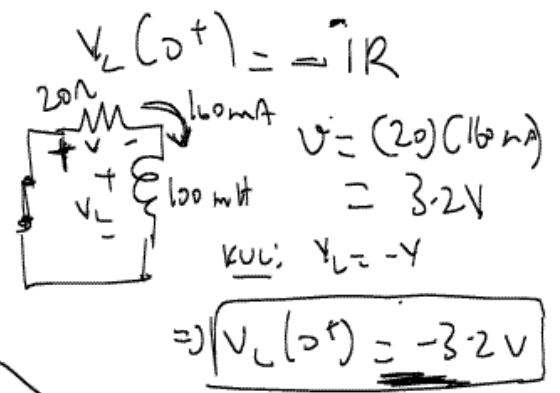 V_L(0⁺) = -iR
20Ω
160mA
+ v -
+
V_L
-
100 mH
v = (20)(160 mA)
= 3.2V
KVL: V_L = -V
=> V_L(0⁺) = -3.2V